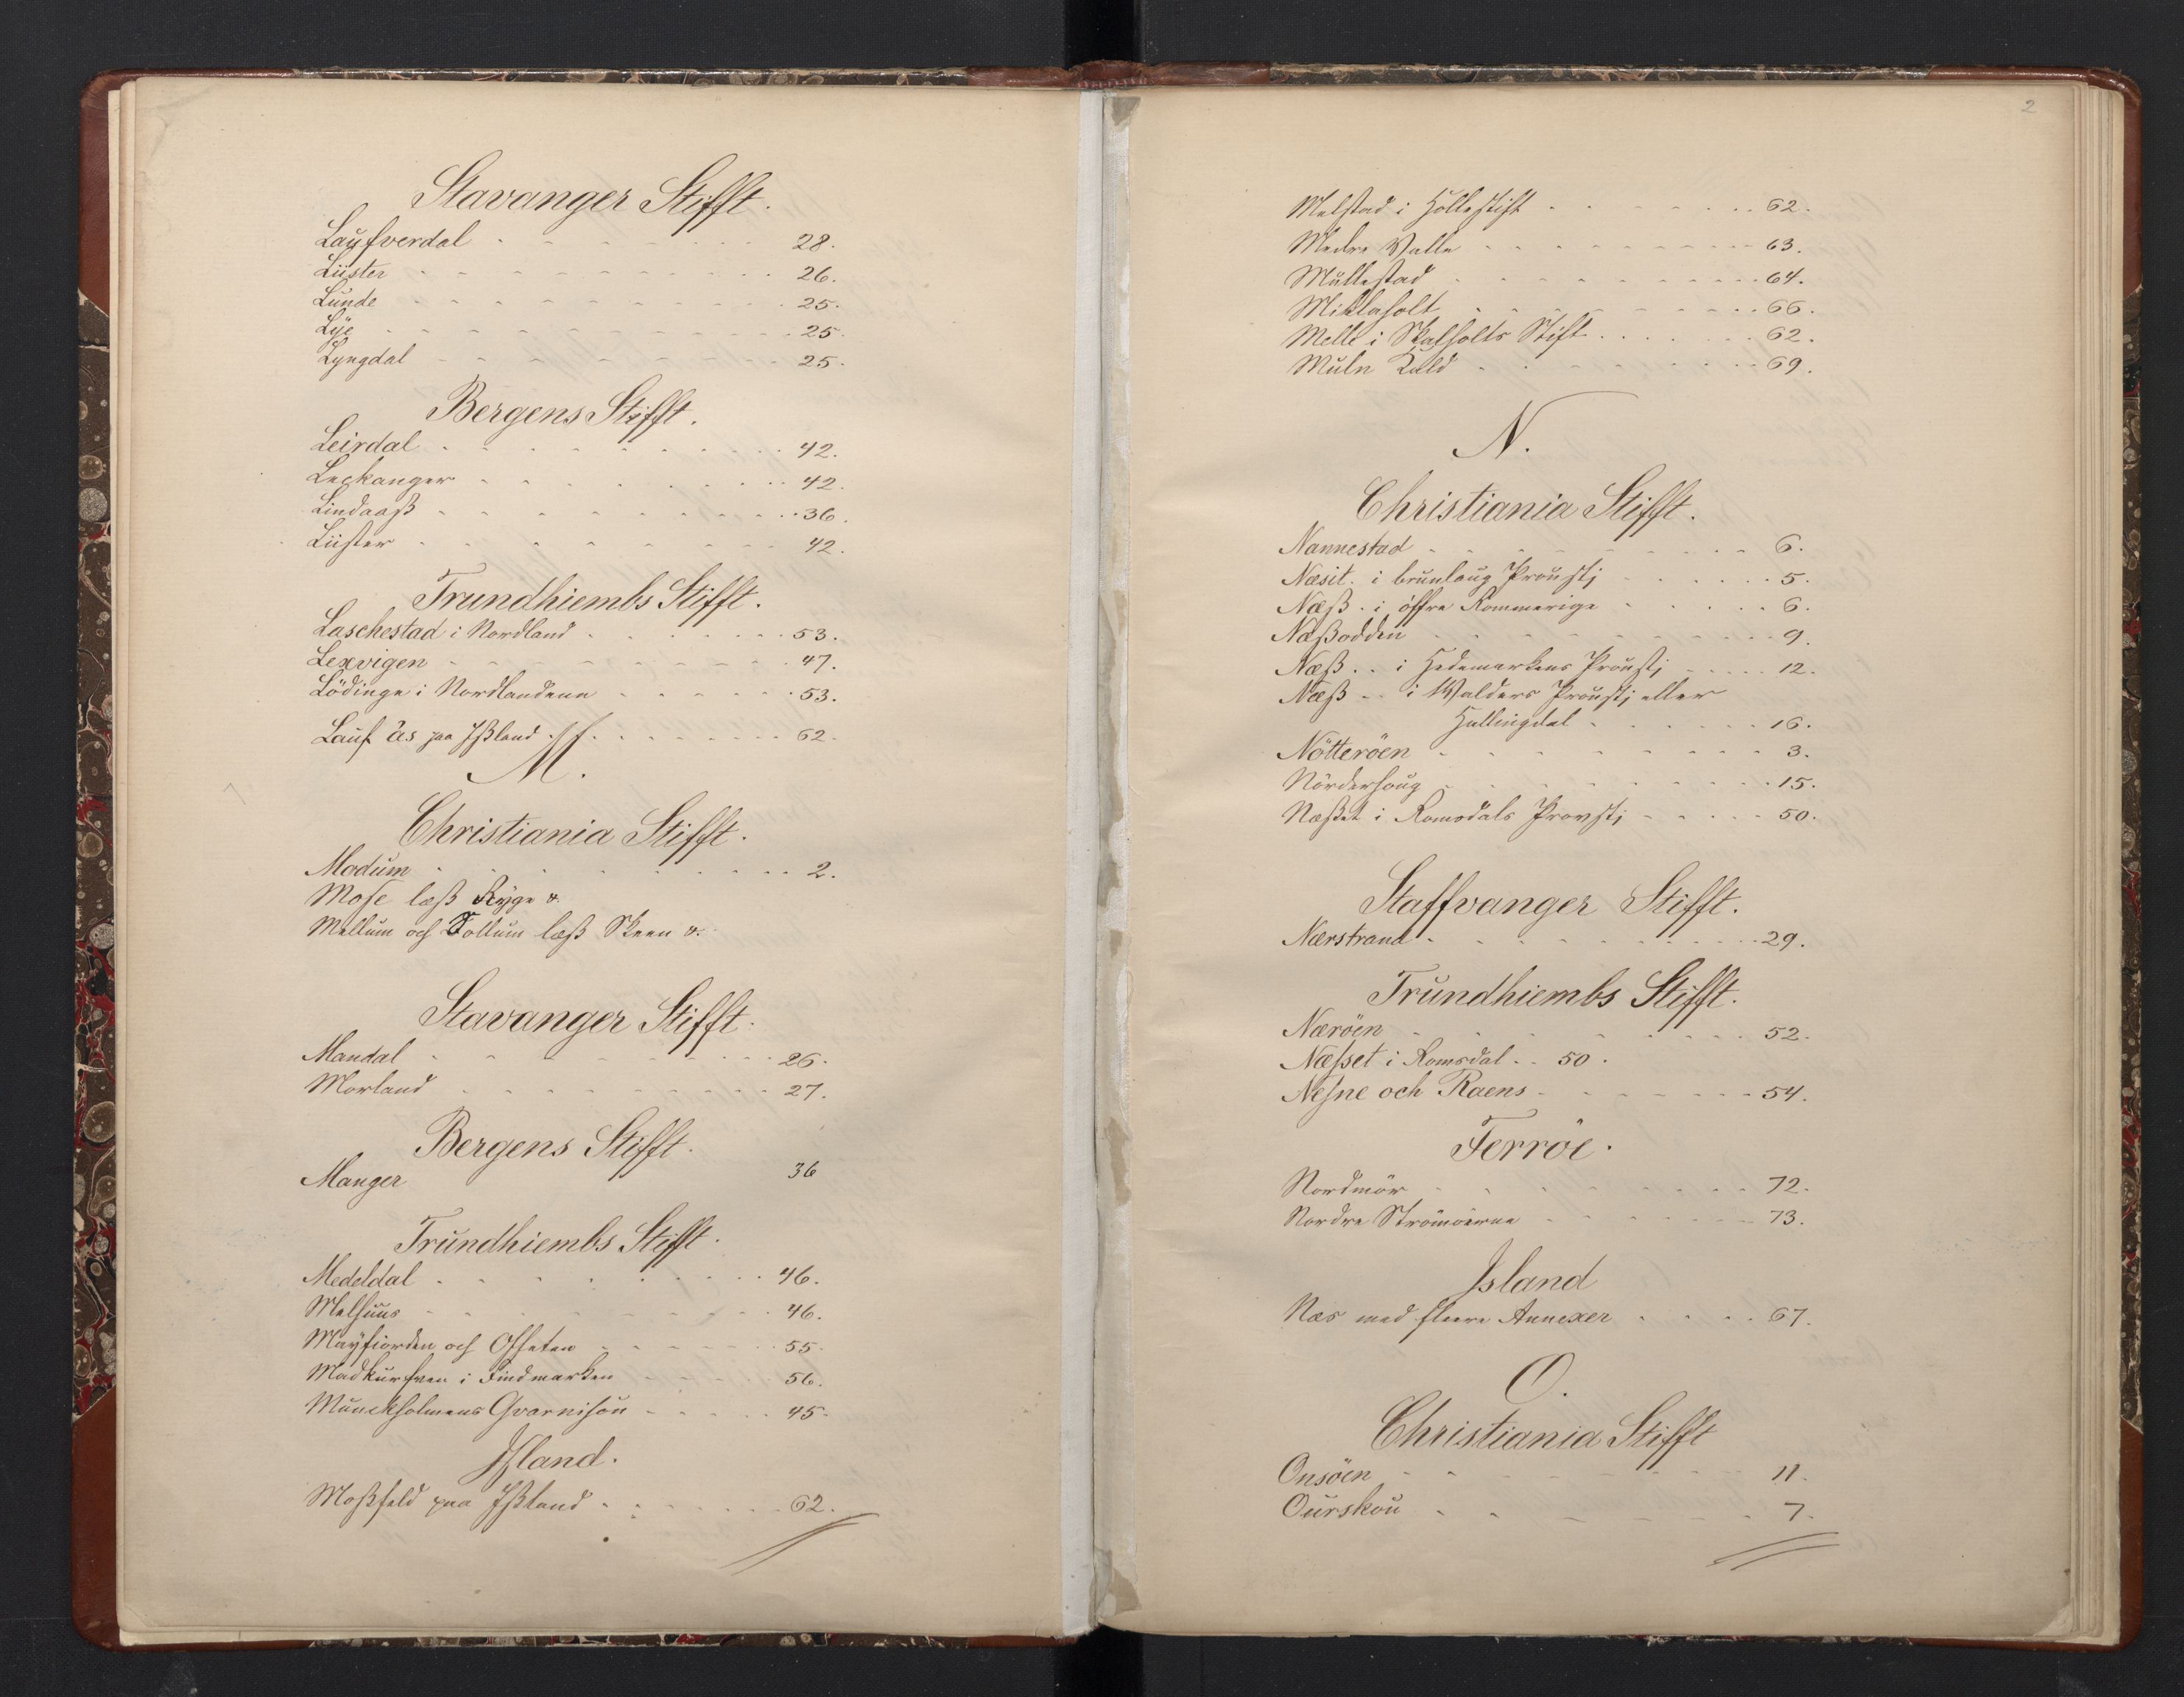 Stavanger Stifft.
Laufverdal 28.
Lüster 26.
Lunde 25.
Lÿe 25.
Lyngdal 25.
Bergens Stifft.
Leirdal 42.
Leckanger 42.
Lindaaß 36.
Lüster 42.
Trundhiembs Stifft.
Laschestad i Nordland 53.
Lexvigen 47.
Lödinge i Nordlandenn 53.
Lauf ås paa Ißland 62.
M.
Christiania Stifft.
Modum 2.
Mose læß Ryge v.
Mellum och Sollum læß Skeen v.
Stavanger Stifft.
Mandal 26.
Morland 27.
Bergens Stifft.
Manger 36
Trundhiembs Stifft.
Medeldal 46.
Melhuus 46.
Mayfiorden och Offeten 55.
Madkurfven i Findmarken 56.
Munckholmens Gvarnison 45.
Island.
Moßfeld paa Ißland 62.
2
Melstad i Hollestift 62.
Medre Valle 63.
Mullestad 64.
Miklaholt 66.
Melle i Skalholts Stift 62.
Mule Kald 69.
N.
Christiania Stifft.
Nannestad 6.
Næsit. i brunlaug Proustj 5.
Næß. i öffre Rommerige 6.
Næßodden 9.
Næß. . i Hedemarkens Proustj 12.
Næß - . i Walders Proustj eller
Hallingdal 16.
Nötteröen 3.
Nörderhoug 15.
Næßet i Romsdals Provstj 50.
Staffvanger Stifft.
Nærstrand 29.
Trundhiembs Stifft.
Næröen 52.
Næsset i Romsdal . . 50.
Nesne och Raens 54.
Ferröe.
Nordmör 72.
Nordre Strömöerne 73.
Island
Næs med fleere Annexer 67.
O.
Christiania Stifft
Onsöen 11.
Ourskou 7.